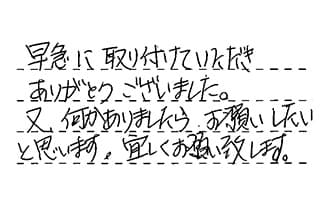 早急に取り付けていただき
ありがとうございました。
又、何かありましたら、お願いしたい
と思います。宜しくお願い致します。